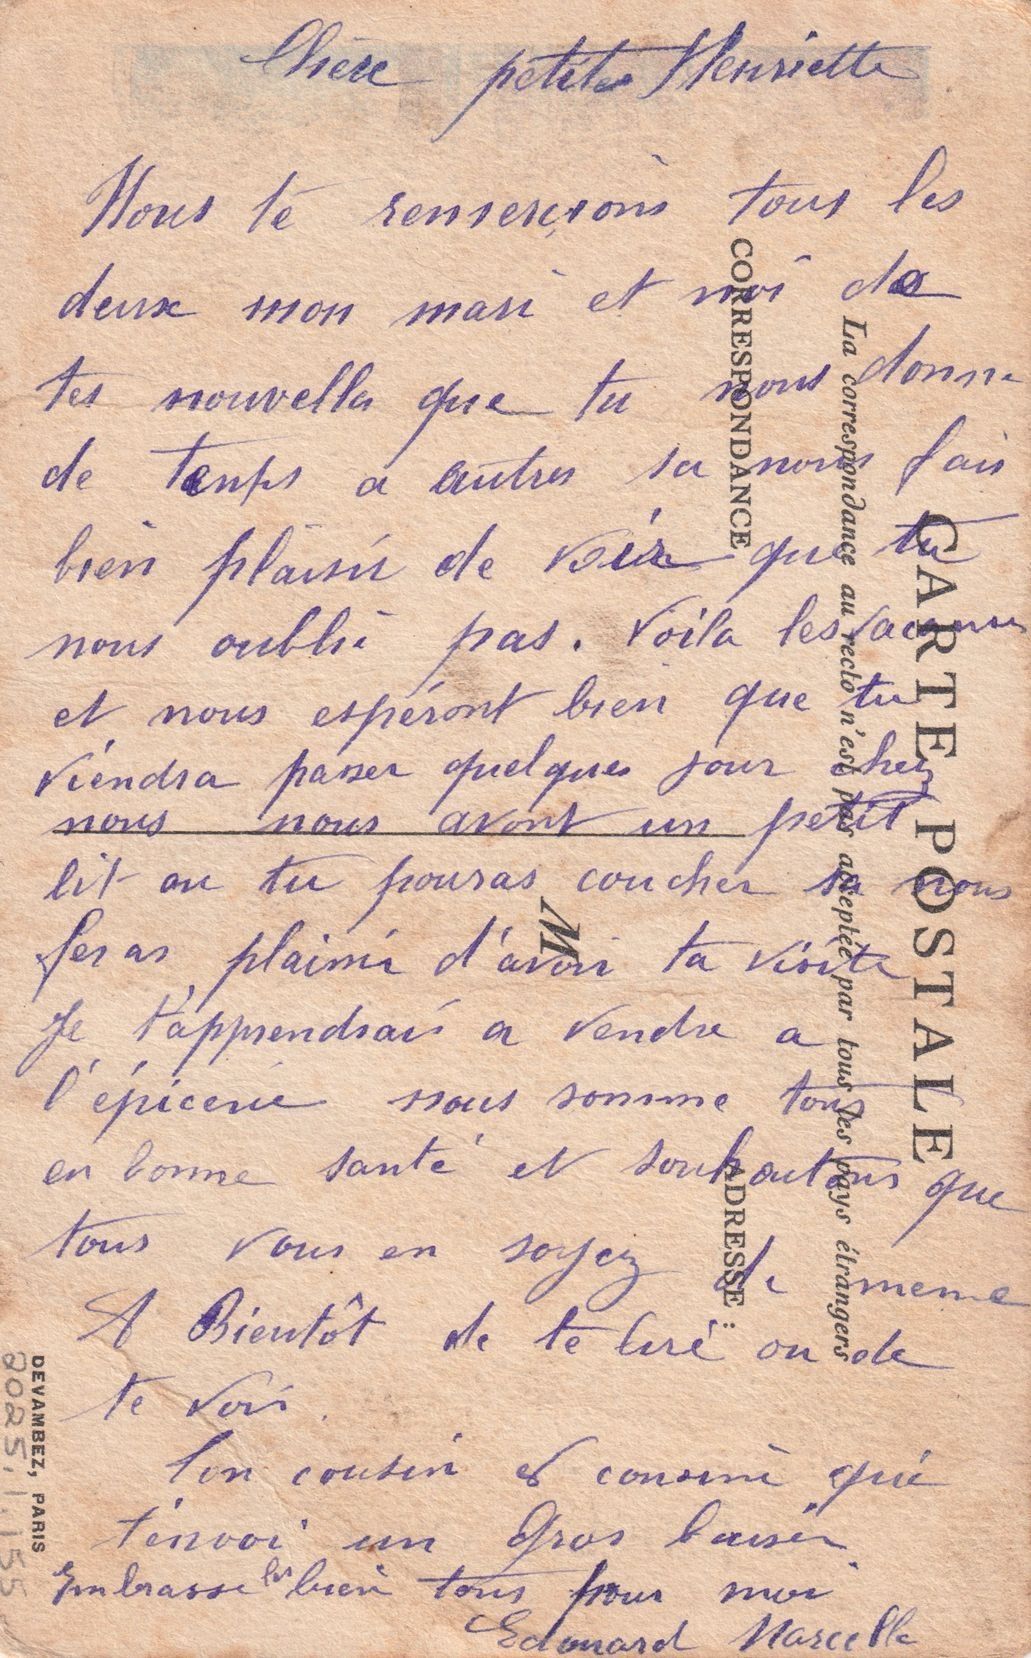 Chère petite Henriette
Nous te remerçions tous les
deux mon mari et moi de
tes nouvelle que tu nous donne
de temps a autres sa nous fais
bien plaisir de voir que tu
nous oublie pas. Voila les vacances
et nous espéront bien que tu
viendra passer quelques jour chez
nous nous avont un petit
lit ou tu pouras coucher sa nous
feras plaisir d'avoir ta visite
Je t'apprendrais a vendre a
l'épicerie nous somme tous
en bonne santé et souhoutons que
tous vous en soyez de meme
A Bientôt de te liré ou de
te voir.
Ton cousin et cousine qui
t'envoi un Gros baiser
Embrasse les bien tous pour moi
Edouard Marcelle
CARTE POSTALE
La correspondance au recto n'est pas acceptée par tous les pays étrangers
CORRESPONDANCE
ADRESSE :
M
DEVAMBEZ, PARIS
2025.1.155